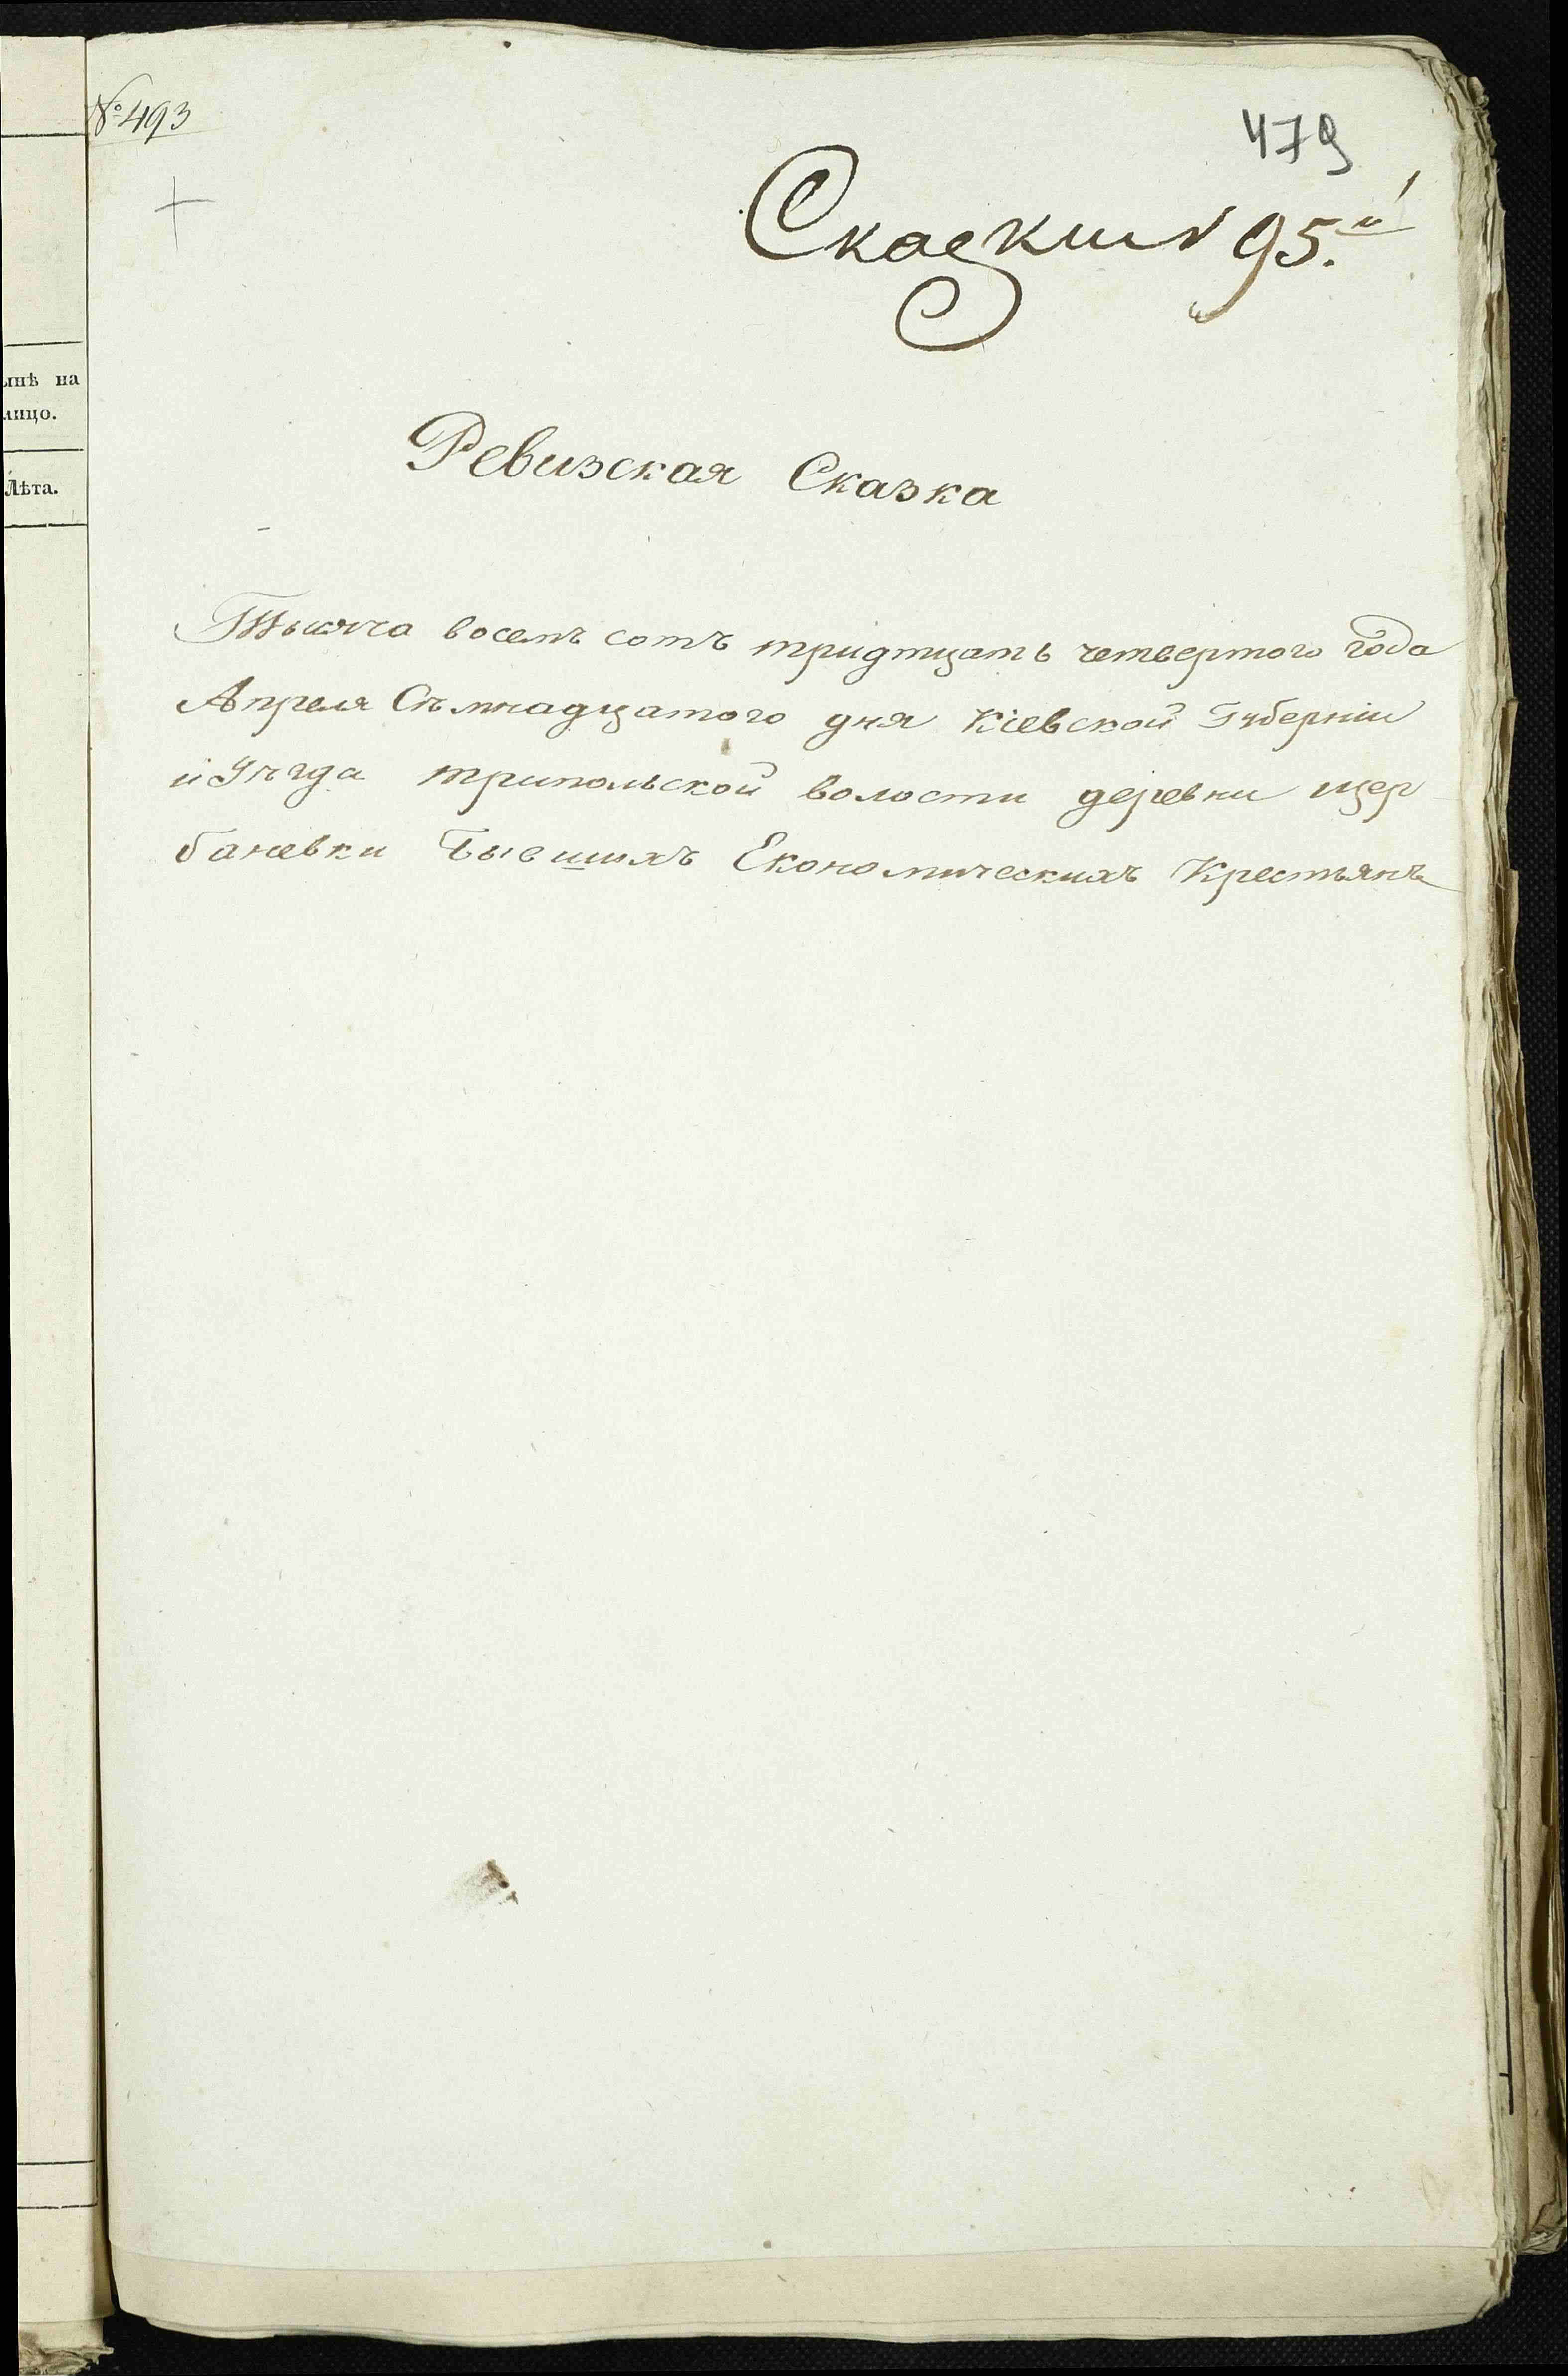 № 493
479
Сказки № 95.й
ынѣ на
лицо.
Лѣта.
Ревизская Сказка
Тысяча восемь сотъ тридтцать четвертого года
Апреля Съмнадцатого дня Кіевской Губерніи
и Уѣзда трипольской волости деревни щер
баневки Бывшихъ Економическихъ Крестьянъ